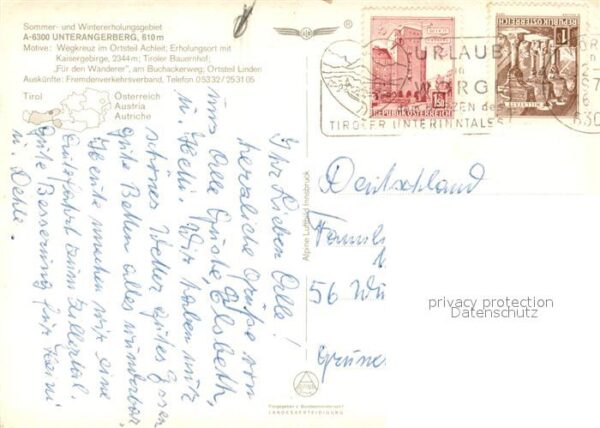 Sommer- und Wintererholungsgebiet
A-6300 UNTERANGERBERG, 610 m
Motive: Wegkreuz im Ortsteil Achleit; Erholungsort mit
Kaisergebirge, 2344 m; Tiroler Bauernhof;
„Für den Wanderer", am Buchackerweg; Ortsteil Linden
Auskünfte: Fremdenverkehrsverband, Telefon 05332/2531 05
Tirol
Österreich
Austria
Autriche
REPUBLIK ÖSTERREICH
1.50
REPUBLIK ÖSTERREICH
1
URLAUB
in
WÖRGL
HERZEN des
TIROLER UNTERINNTALES
630
Ihr Lieben Alle!
herzliche Grüße von
uns Alle Guste, Elsbeth,
u. Hedi. Wir haben nur
schönes Wetter gutes Essen
gute Betten alles wunderbar,
Heute machen wir eine
fahrt zum Zillertal.
Gute Besserung für Heini
u.
Alpine Luftbild Innsbruck
LANDESVERTEIDIGUNG
Deutschland
56 Wu
Grüne
privacy protection
Datenschutz